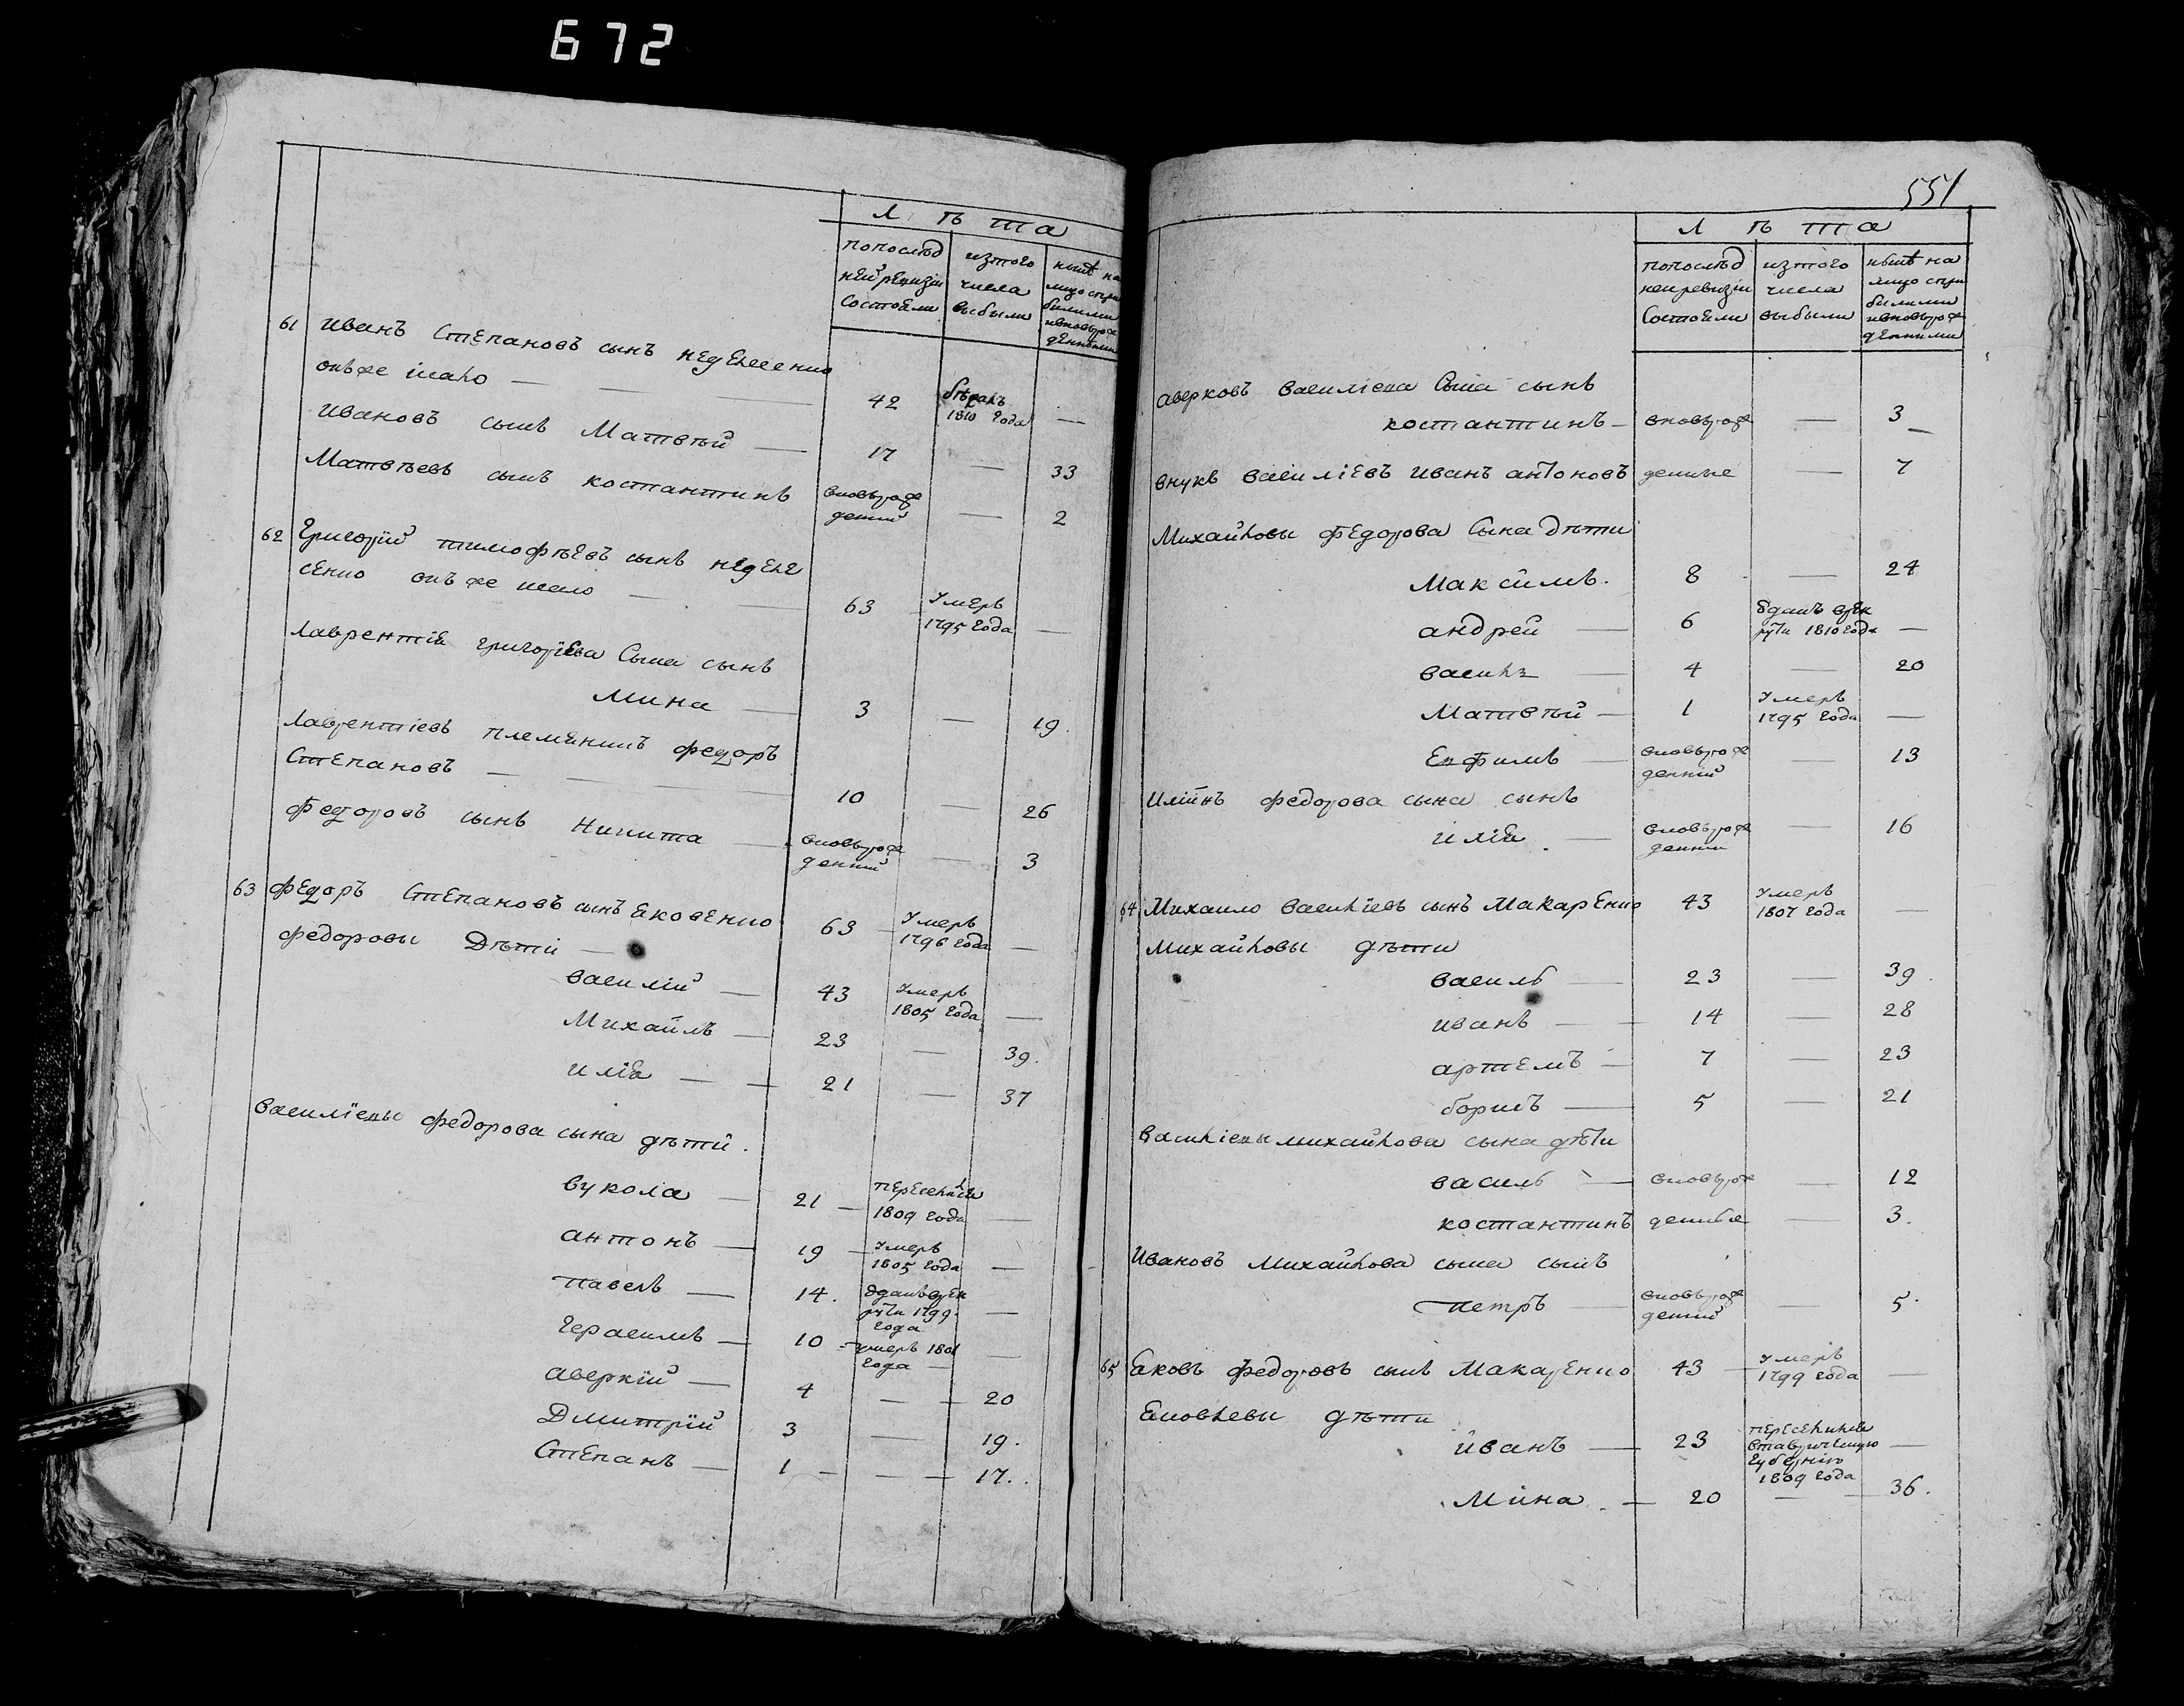 672
Лѣта
попослѣд изтого нынѣ на
ней ревизіи числа лицо спри
Состояли выбыли былыми
ивновьрож
денными
61 иванъ Степановъ сынъ
онъже шало — 42 1810 года —
Ивановъ сынъ Матвѣй — 17 — 33
Матвѣевъ сынъ костантинъ вновьрож
денній — 2
62 Григорій тимофѣевъ сынъ
онъже шало — 63 Умеръ
1795 года —
Лаврентія григоріева Сына сынъ
Мина — 3 — 19.
Лаврентіевъ племянникъ федоръ
Степановъ — 10 — 26
Федоровъ сынъ Никита — вновьрож
денній — 3
63 Федоръ Степановъ сынъ Яковенко 63 Умеръ
1796 года —
федоровы Дѣти —
василій — 43 Умеръ
1805 года —
Михайлъ — 23 — 39.
илія — 21 — 37
Василіевы федорова сына дѣти.
вукола — 21 —
1809 года —
антонъ — 19 — Умеръ
1805 года —
павелъ — 14. Отданъ врек
рути 1799.
года —
Герасимъ — 10 — умеръ 1801
года —
аверкій — 4 — 20
Дмитрій 3 — 19.
Степанъ — 1 — 17.
551
Лѣта
попослѣд изтого нынѣ на
ней ревизіи числа лицо спри
Состояли выбыли былыми
ивновьрож
денными
аверковъ василіева Сына сынъ
костантинъ — вновьрож — 3
внукъ василіевъ иванъ антоновъ денные — 7
Михайловы федорова Сына дѣти
Максимъ. 8 — 24
андрей — 6 Отданъ врек
рути 1810 года —
василь — 4 — 20
Матвѣй — 1 Умеръ
1795 года —
Ефимъ — вновьрож
денній — 13
Иліинъ федорова сына сынъ
илія — вновьрож
денній — 16
64 Михаило васильевъ сынъ Макаренко 43 Умеръ
1807 года —
Михайловы дѣти
василь — 23 — 39.
иванъ — 14 — 28
артемъ — 7 — 23
борисъ — 5 — 21
васильевы михайлова сына дѣти
василь — вновьрож — 12
костантинъ денные — 3.
Ивановъ Михайлова сына сынъ
петръ вновьрож
денній — 5.
65 Яковъ федоровъ сынъ Макаренко 43 — Умеръ
1799 года —
Яковлевы дѣти
иванъ — 23
втаврическую
губернію
1809 года —
Мина. — 20 — 36.